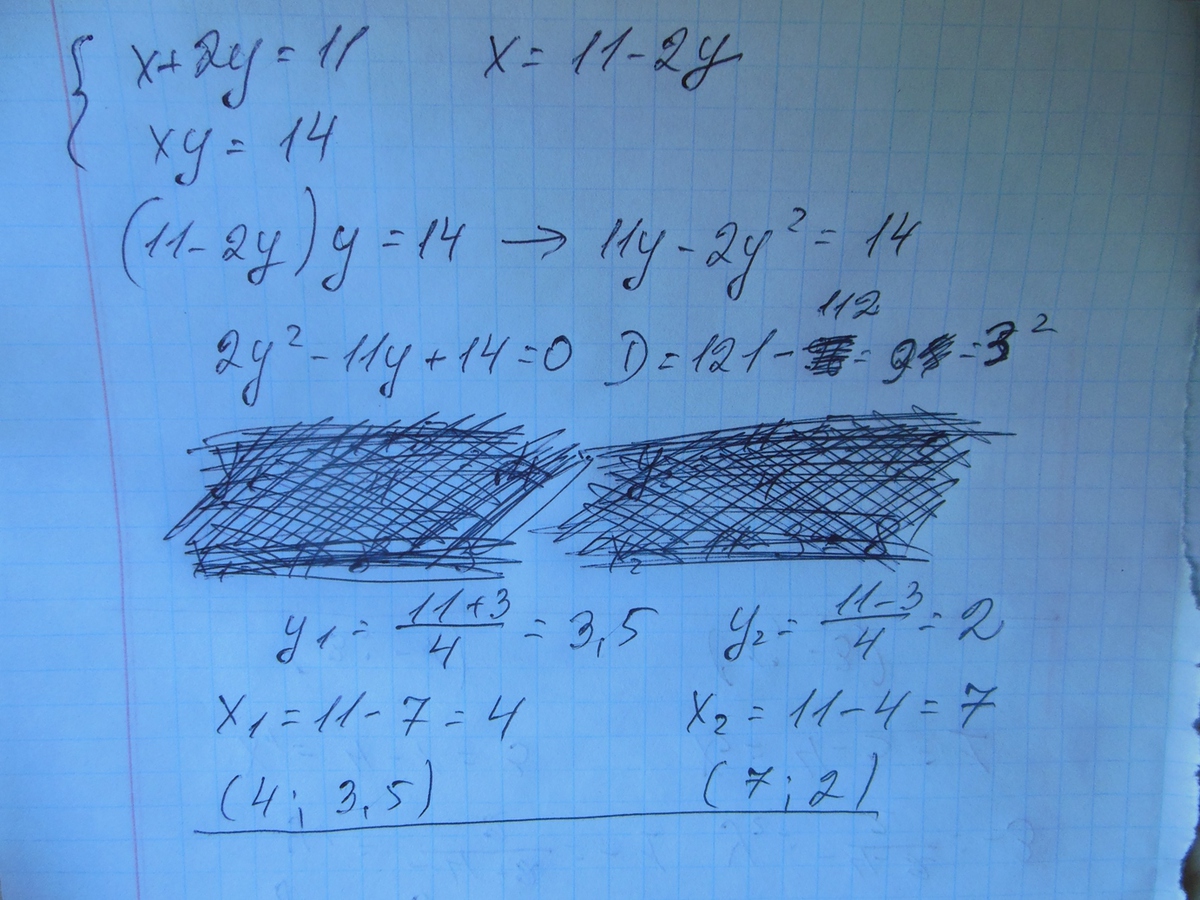 { x+2y=11 x=11-2y
xy=14
(11-2y)y=14 → 11y-2y²=14
2y²-11y+14=0 D=121-112=9=3²
y₁=(11+3)/4=3,5 y₂=(11-3)/4=2
x₁=11-7=4 x₂=11-4=7
(4; 3,5) (7; 2)